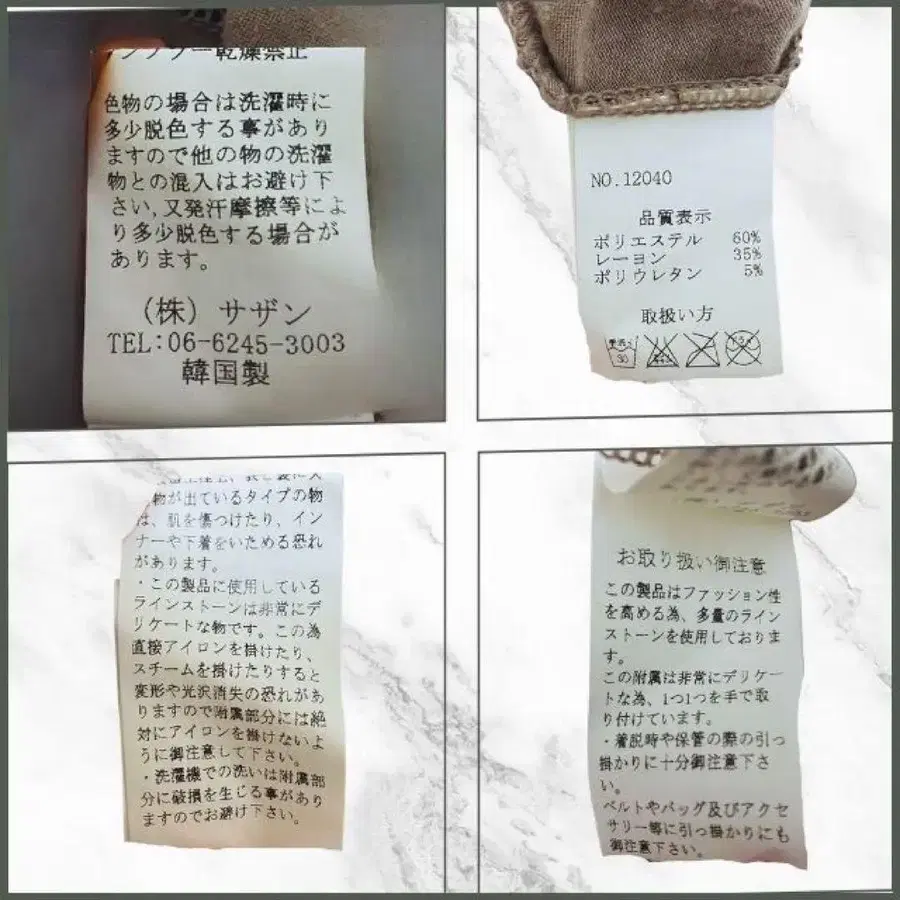 ンブラー乾燥禁止
色物の場合は洗濯時に
多少脱色する事があり
ますので他の物の洗濯
物との混入はお避け下
さい,又発汗摩擦等によ
り多少脱色する場合が
あります。
(株)サザン
TEL:06-6245-3003
韓国製
NO.12040
品質表示
ポリエステル 60%
レーヨン 35%
ポリウレタン 5%
取扱い方
30
物が出ているタイプの物
は、肌を傷つけたり、イン
ナーや下着をいためる恐れ
があります。
・この製品に使用している
ラインストーンは非常にデ
リケートな物です。この為
直接アイロンを掛けたり、
スチームを掛けたりすると
変形や光沢消失の恐れがあ
りますので附属部分には絶
対にアイロンを掛けないよ
うに御注意して下さい。
・洗濯機での洗いは附属部
分に破損を生じる事があり
ますのでお避け下さい。
お取り扱い御注意
この製品はファッション性
を高める為、多量のライン
ストーンを使用しておりま
す。
この附属は非常にデリケー
トな為、1つ1つを手で取
り付けています。
・着脱時や保管の際の引っ
掛かりに十分御注意下さ
い。
ベルトやバッグ及びアクセ
サリー等に引っ掛かりにも
御注意下さい。